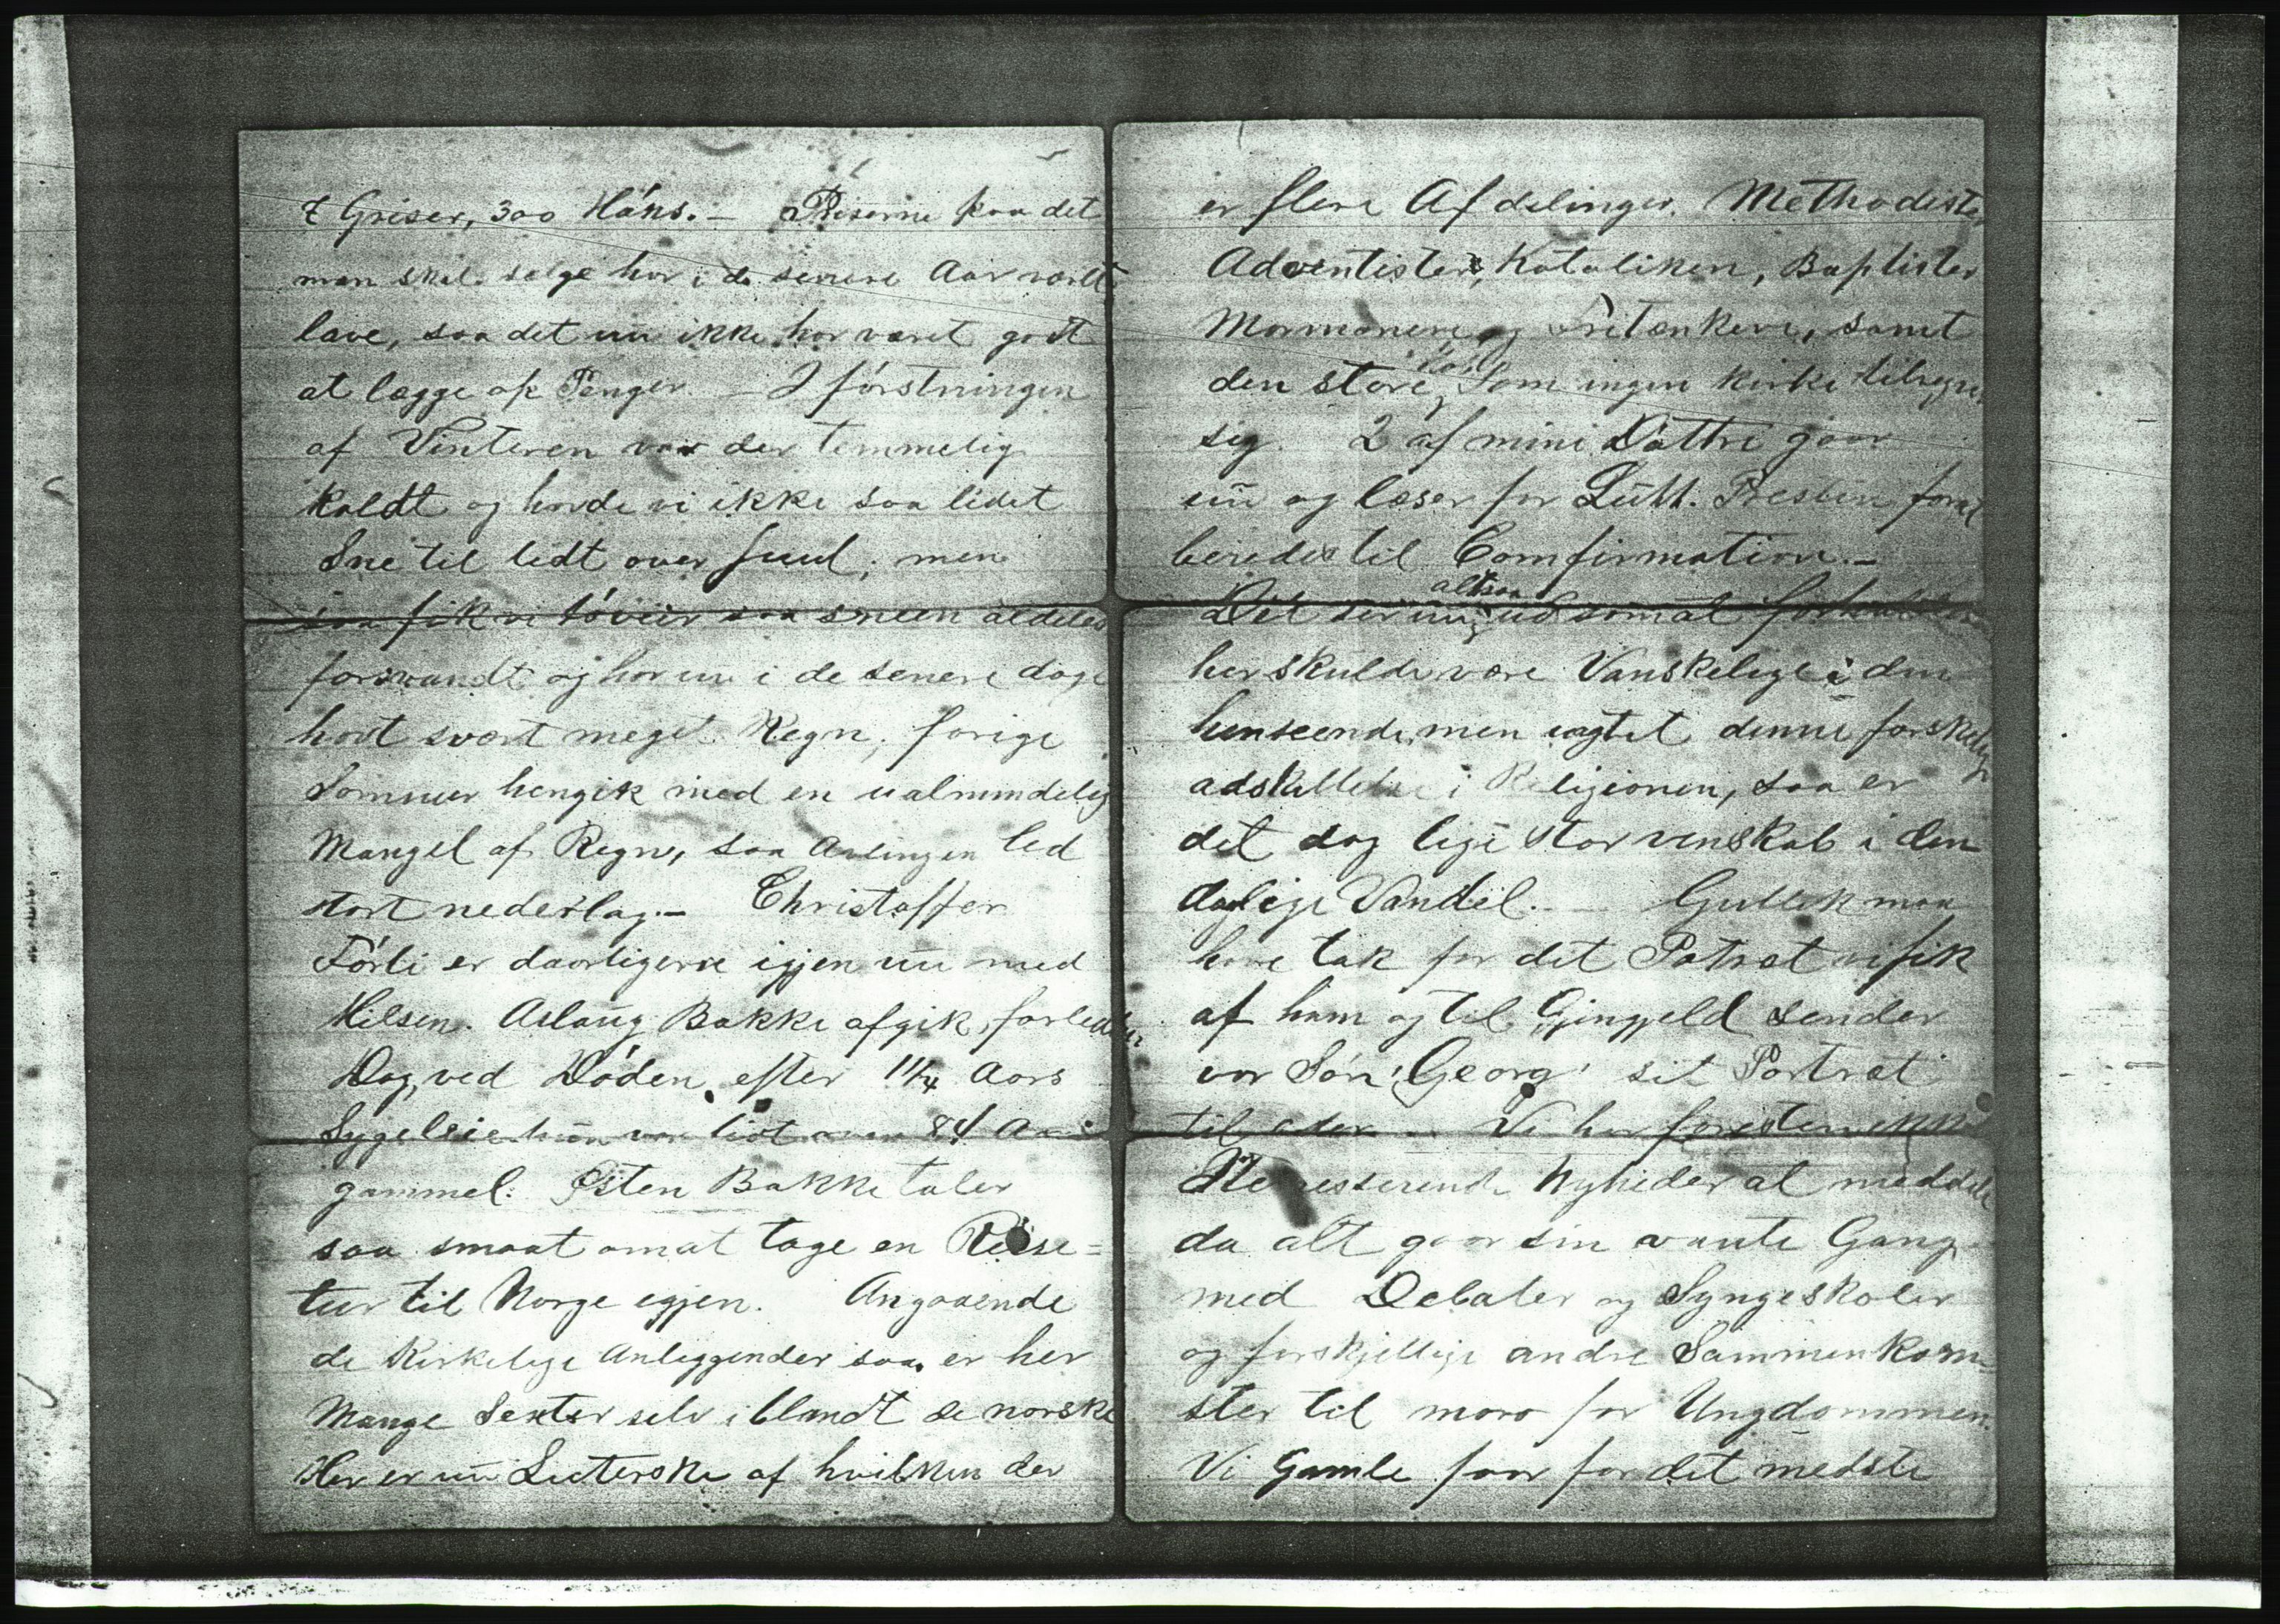 7 Griser, 300 Høns. — Priserne paa det
man skal selge har i de senere Aar vært
lave, saa det nu ikke har været godt
at lægge op Penger. — I førstningen
af Vinteren var der temmelig
koldt og havde vi ikke saa lidet
Sne til lidt over Juul, men
saa fik vi tøveir saa sneen aldeles
forsvandt og har nu i de senere dage
havt svært meget Regn, forige
Sommer hengik med en ualmindelig
Mangel af Regn, saa Avlingen led
stort nederlag. — Christoffer
Førli er daarligere igjen nu med
Hilsen. Aslaug Bakke afgik, forleden
Dag, ved Døden efter 1 1/4 Aars
Sygeleie hun var lidt over 84 Aar
gammel. Østen Bakke taler
saa smaat om at tage en Reise=
tur til Norge igjen. Angaaende
de Kirkelige Anliggender saa er her
Mange Sekter selv iblandt de norske
Her er nu Luterske af hvilken der
er flere Afdelinger. Methodister,
Adventister, Katoliken, Baptister
Mormonere og Fritænkere, samt
den store, som ingen kirke tilegner
sig. 2 af mine Døttre gaar
nu og læser for Luth. Presten for at
beredes til Comfirmation. —
Det ser nu altsaa ud som at forholdene
her skulde være Vanskelige i den
henseende, men uagtet denne forskelige
adskillelse i Religionen, saa er
det dog lige stor venskab i den
daglige Vandel. — Gullik maa
have tak for det Potræt vi fik
af ham og til Gjengjeld sender
vor Søn 'Georg' sit Portræt
til eder. — Vi har foresten ikke
Nyheder at meddele
da alt gaar sin vante Gang
med Debater og Syngeskoler
og forskjellige andre Sammenkom=
ster til moro for Ungdommen.
Vi Gamle faar for det medste